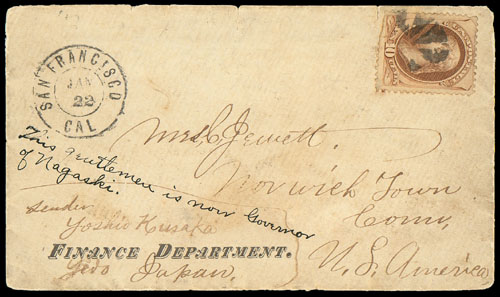 SAN FRANCISCO
JAN
22
CAL
10
Mrs C Jewett.
Norwich Town
Conn,
U.S. America
This gentlemen is now Governor
of Nagaski.
Sender
Yoshio Kusaka
FINANCE DEPARTMENT.
Yedo
Japan,